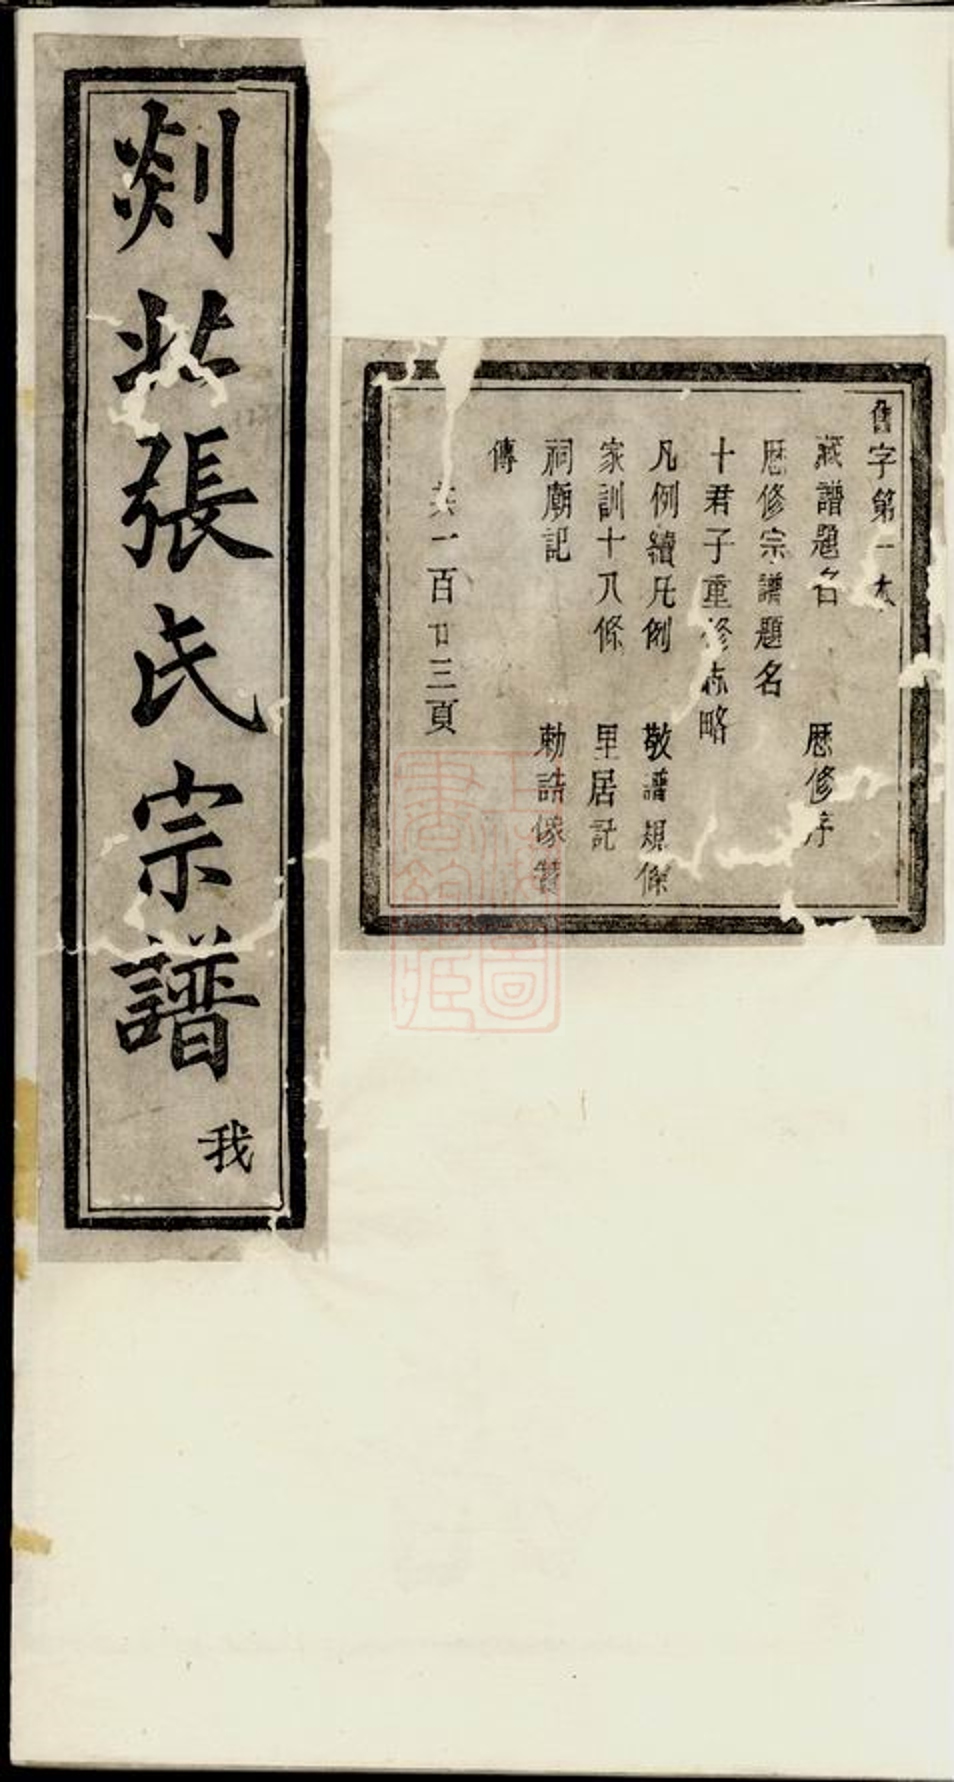 字第一本
藏譜題名　厯修序
厯修宗譜題名
十君子重修志略
凡例續凡例　敬譜規條
家訓十八條　里居記
祠廟記　勅誥像贊
傳
共一百廿三頁
剡北張氏宗譜
我
上海圖書館藏